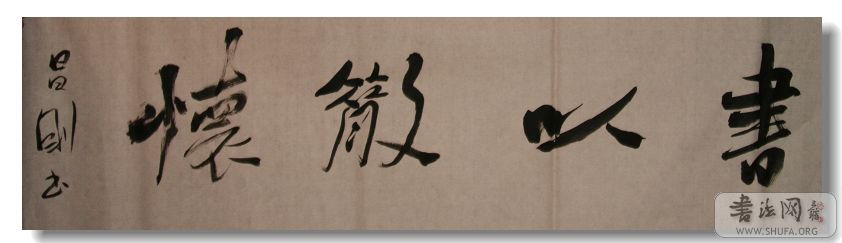 書以散懷
昌书
書法网
WWW.SHUFA.ORG